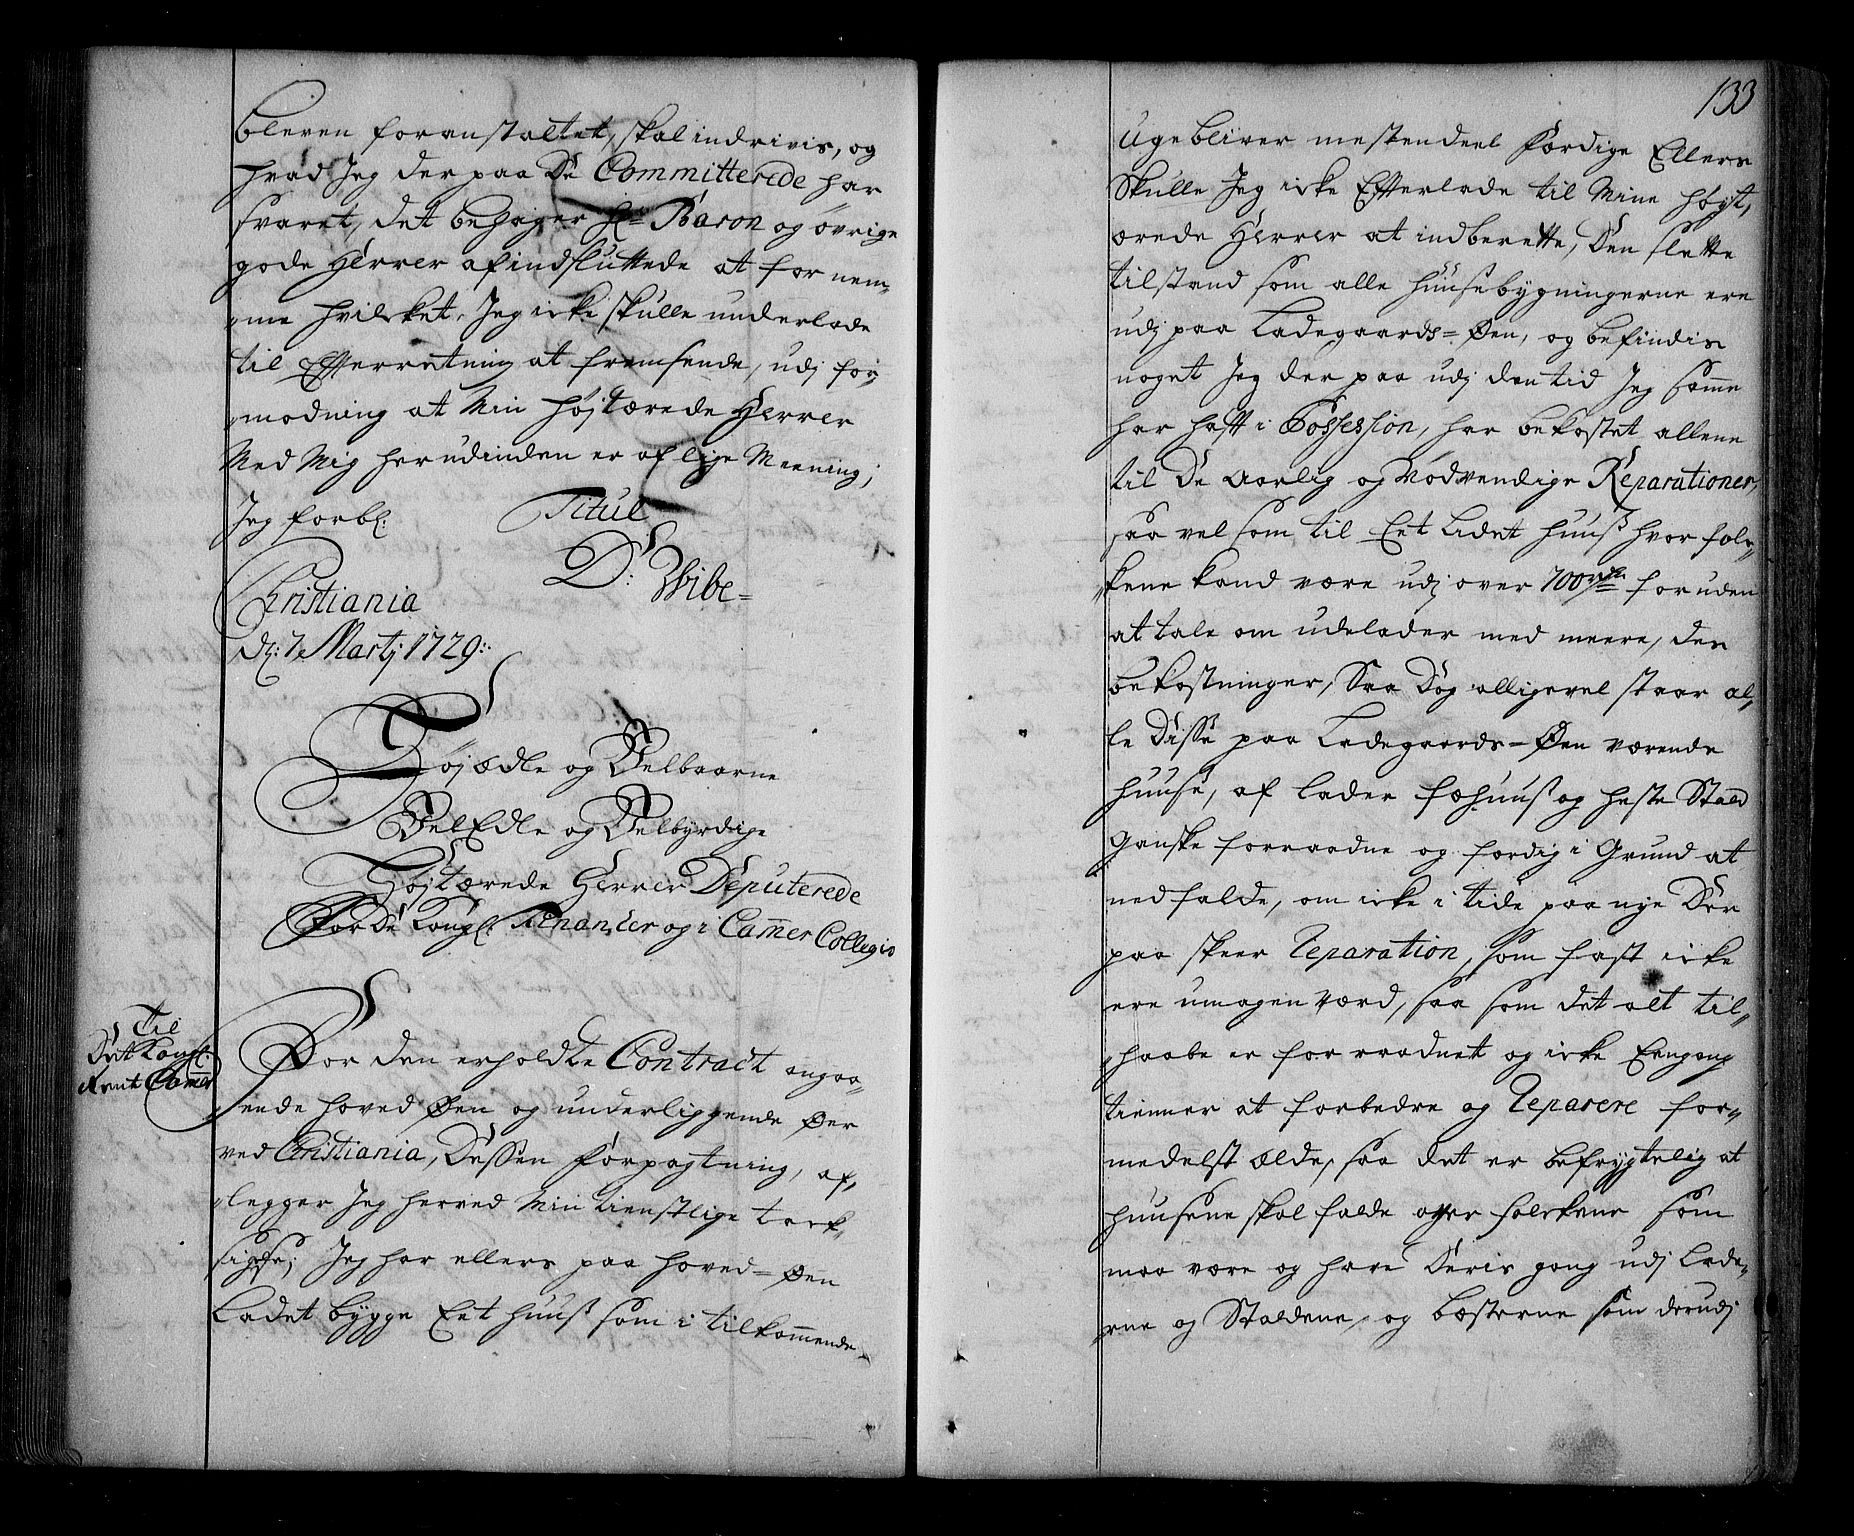 bleven foranstaltet, skal indrivis, og
hvad Jeg der paa De Committerede har
svaret, det behager Hr: Baron og øvrige
gode Herrer af indsluttede at fornem„
„me hvilcket, Jeg icke skulle underlade
til Efterretning at fremsende, udj for„
„modning at Min højstærede Herrer
Med Mig herudinden er af lige Meening;
Jeg forbl: Titul
D: Wibe=
Christiania
d: 7 Martj 1729:
Højædle og Velbaarne
VelEdle og Velbyrdige
Højstærede Herrer Deputerede
For De Kongl: Finantzer og i Cammer Collegio
Til
Det Kongl:
Rente Camer
For den erholdte Contract angaa„
„ende hoved Øen og underliggende Øer
ved Christiania, Dessen forpagtning, af„
„legger Jeg herved Min tienstlige tack„
sigelse; Jeg har ellers paa hoved=Øen
Ladet bygge Eet huus som i tilkommende
133
Uge bliver mestendeel færdige Ellers
Skulle Jeg icke Efterlade til Mine højst„
ærede Herrer at indberette, Den slette
tilstand som alle huusebygningerne ere
udj paa Ladegaards=Øen, og befindis
noget Jeg der paa udj den tid Jeg samme
har hafft i Possession, har bekostet allene
til De Aarlig og Nødvendige Reparationer,
saa vel som til Eet Lidet huus hvor fol„
„kene kand være udj over 700 rdr foruden
at tale om udelader med meere, der
bekostninger, Saa Dog alligevel staar al„
le Disse paa Ladegaards=Øen værende
huuse, af lader fæhuus og heste Stald
Ganske forraadne og færdig i Grund at
nedfalde, om icke i tide paa nye Der
paa skeer Reparation, som fast icke
ere umagen værd, saa som det alt til„
„haabe er forraadnet og icke Engang
tienner at forbedre og Reparere for„
medelst ælde, saa det er befrygtelig at
huusene skal falde over folckene som
maa være og have Deris gang udj Lade„
rne og Staldene, og bæsterne som derudj